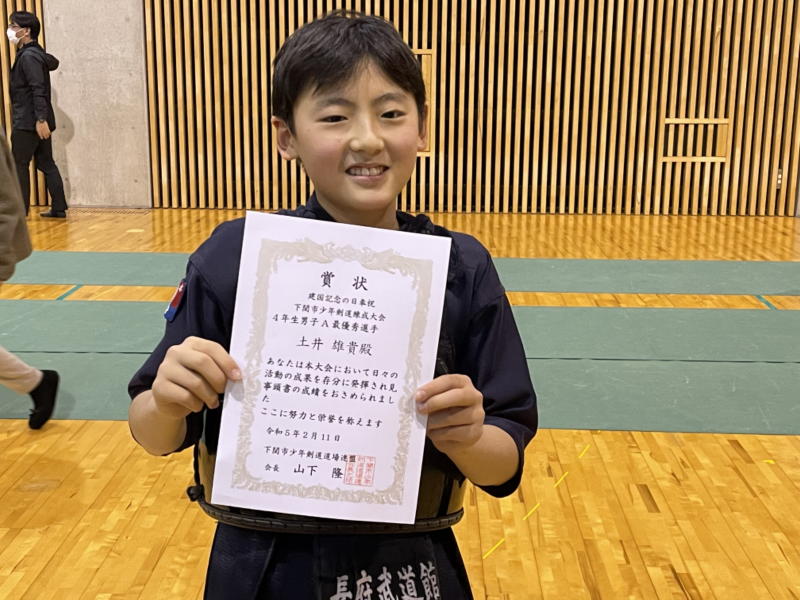 賞状
建国記念の日奉祝
下関市少年剣道錬成大会
4年生男子A最優秀選手
土井 雄貴殿
あなたは本大会において日々の
活動の成果を存分に発揮され見
事頭書の成績をおさめられまし
た
ここに努力と栄誉を称えます
令和5年2月11日
下関市少年剣道道場連盟
会長 山下 隆
長府武道館